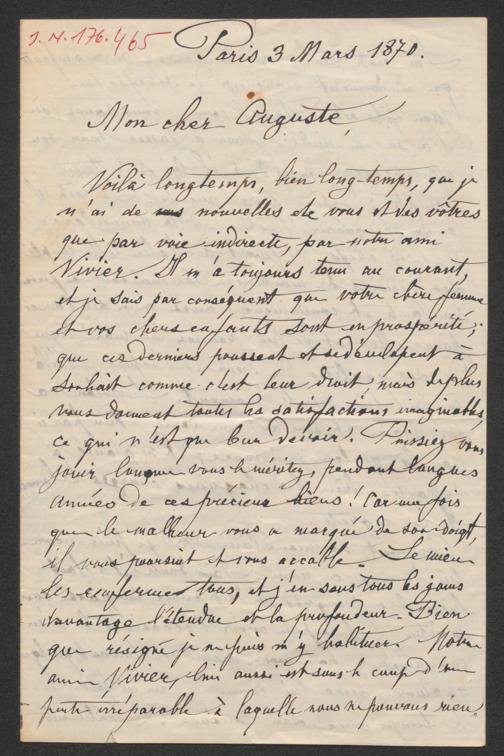 J. N. 176.465
Paris 3 Mars 1870.
Mon cher Auguste,
Voilà longtemps, bien long-temps, que je
n'ai de nouvelles de vous et des vôtres
que par voie indirecte, par notre ami
Vivier. Il m'a toujours tenu au courant,
et je sais par conséquent que votre chère femme
et vos chers enfants sont en prospérité;
que ces derniers poussent et se dévelopent à
souhait comme c'est leur droit, mais de plus
vous donnent toutes les satisfactions imaginables,
ce qui n'est que leur devoir. Puissiez vous
jouir comme vous le méritez, pendant longues
années de ces précieux biens! Car une fois
que le malheur vous a marqué de son doigt,
il vous poursuit et vous accable. Le mien
les renferme tous, et j'en sens tous les jours
davantage l'étendue et la profondeur. Bien
que résigné je ne puis m'y habituer. Notre
ami Vivier, lui aussi est sous le coup d'une
perte irréparable à laquelle nous ne pouvons rien.